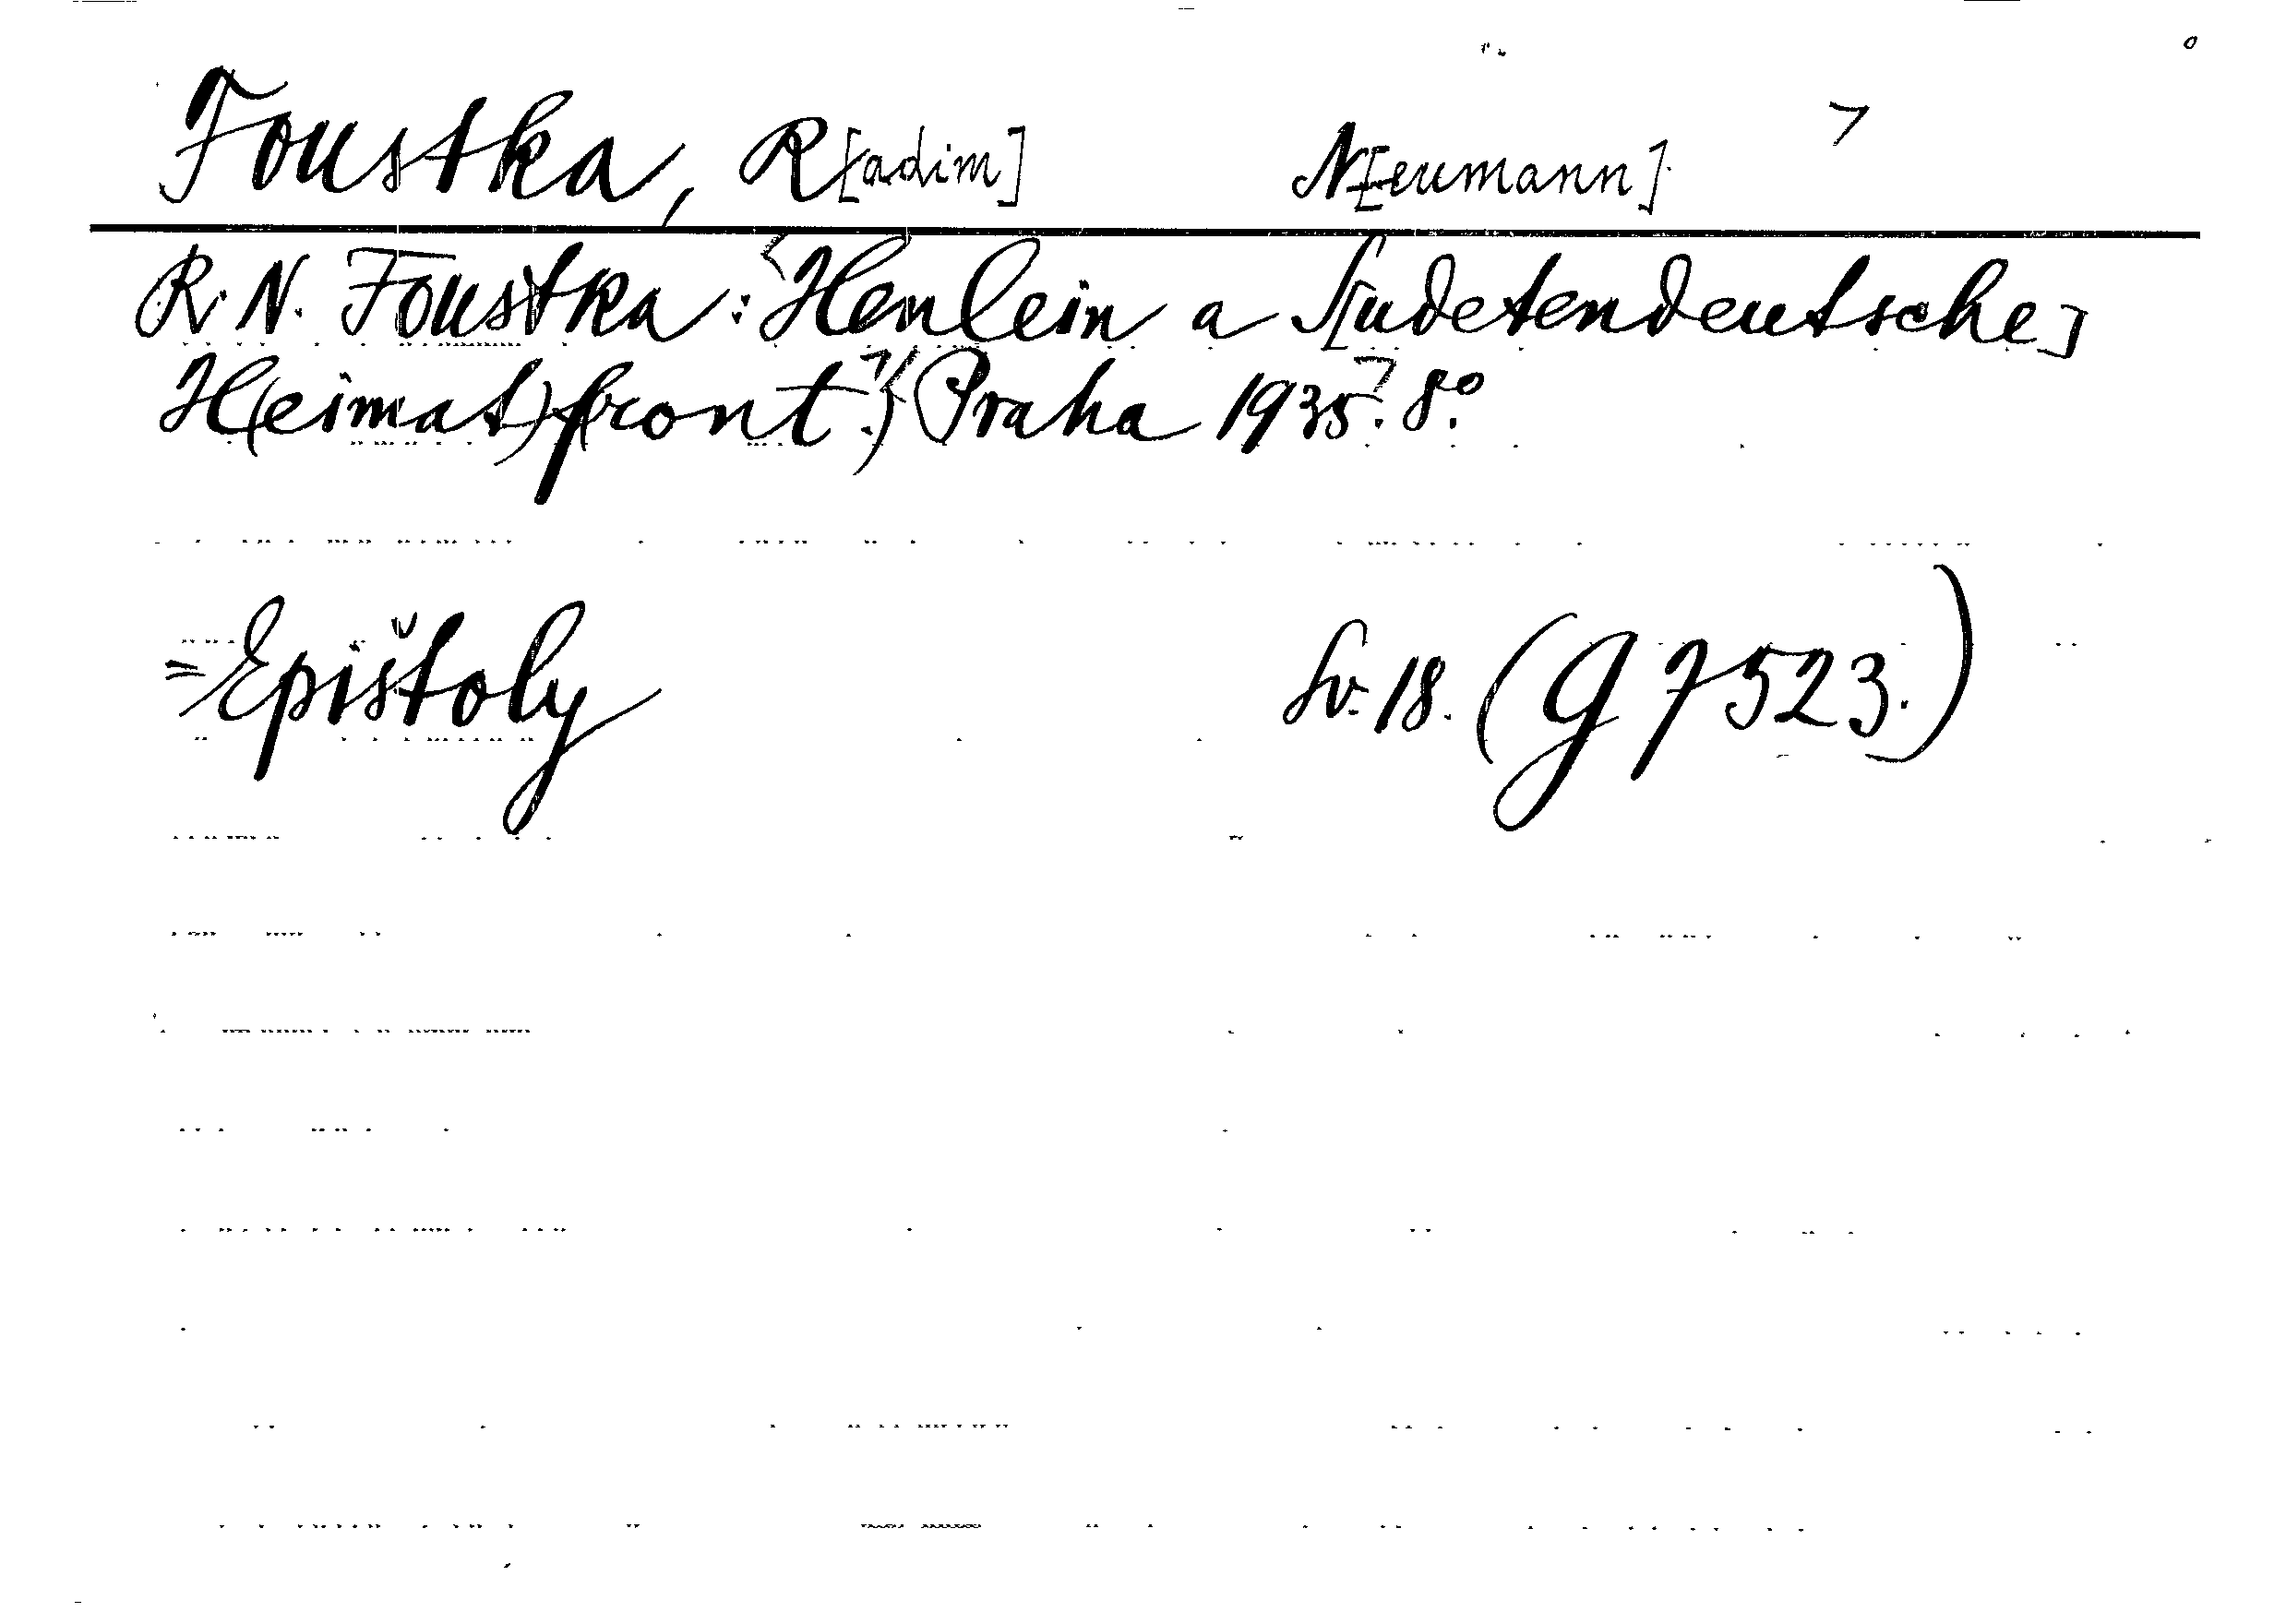 Foustka, R[adim] N[eumann]
R. N. Foustka: Henlein a S[udetendeutsche]
H(eimat)front. Praha 1935. 8°.
=Epištoly Sv. 18. (G 7523.)